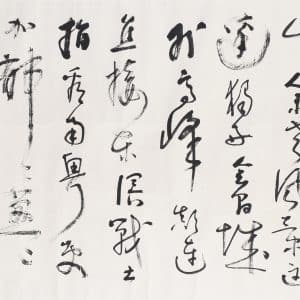 山人未老风景这
边獨好會昌城
外高峰颠连
直接东溟戰士
指看南粤更
加郁々葱々